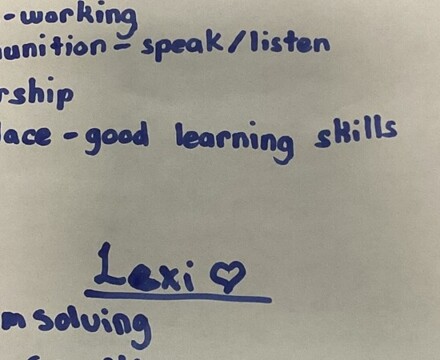 -working
unition - speak/listen
rship
lace - good learning skills
Lexi ♡
m solving